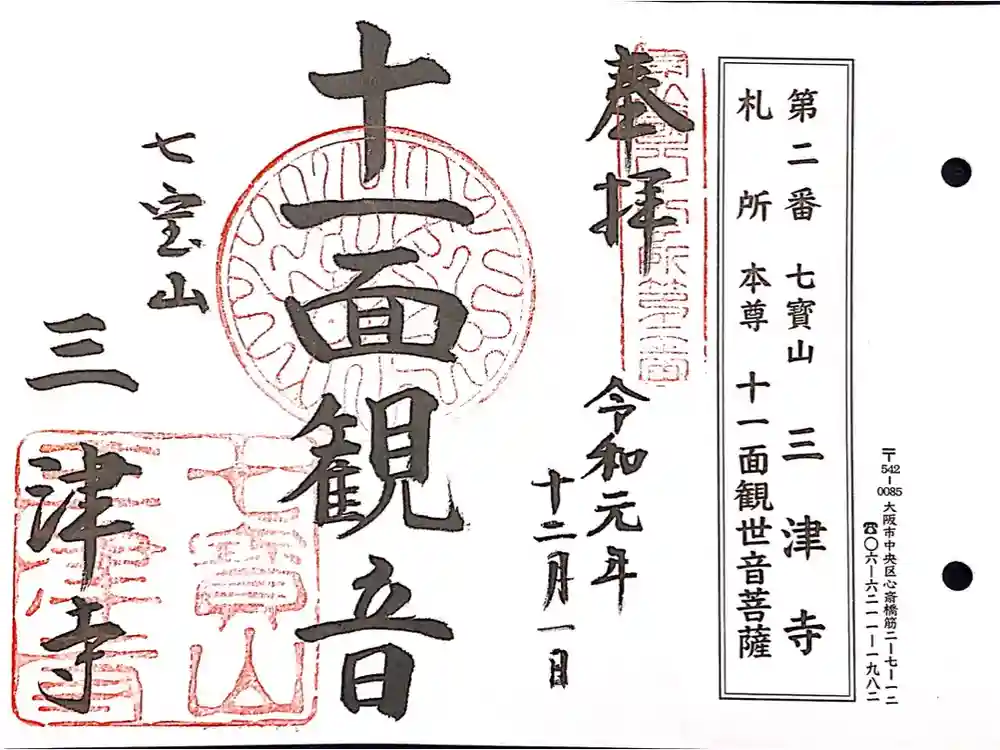 〒542-0085 大阪市中央区心斎橋筋二ー七ー一二
☎〇六ー六二一一ー一九八二
第二番 七寳山 三津寺
札所 本尊 十一面観世音菩薩
奉拝
令和元年
十二月一日
十一面観音
七宝山
三津寺
七寳山
三津寺